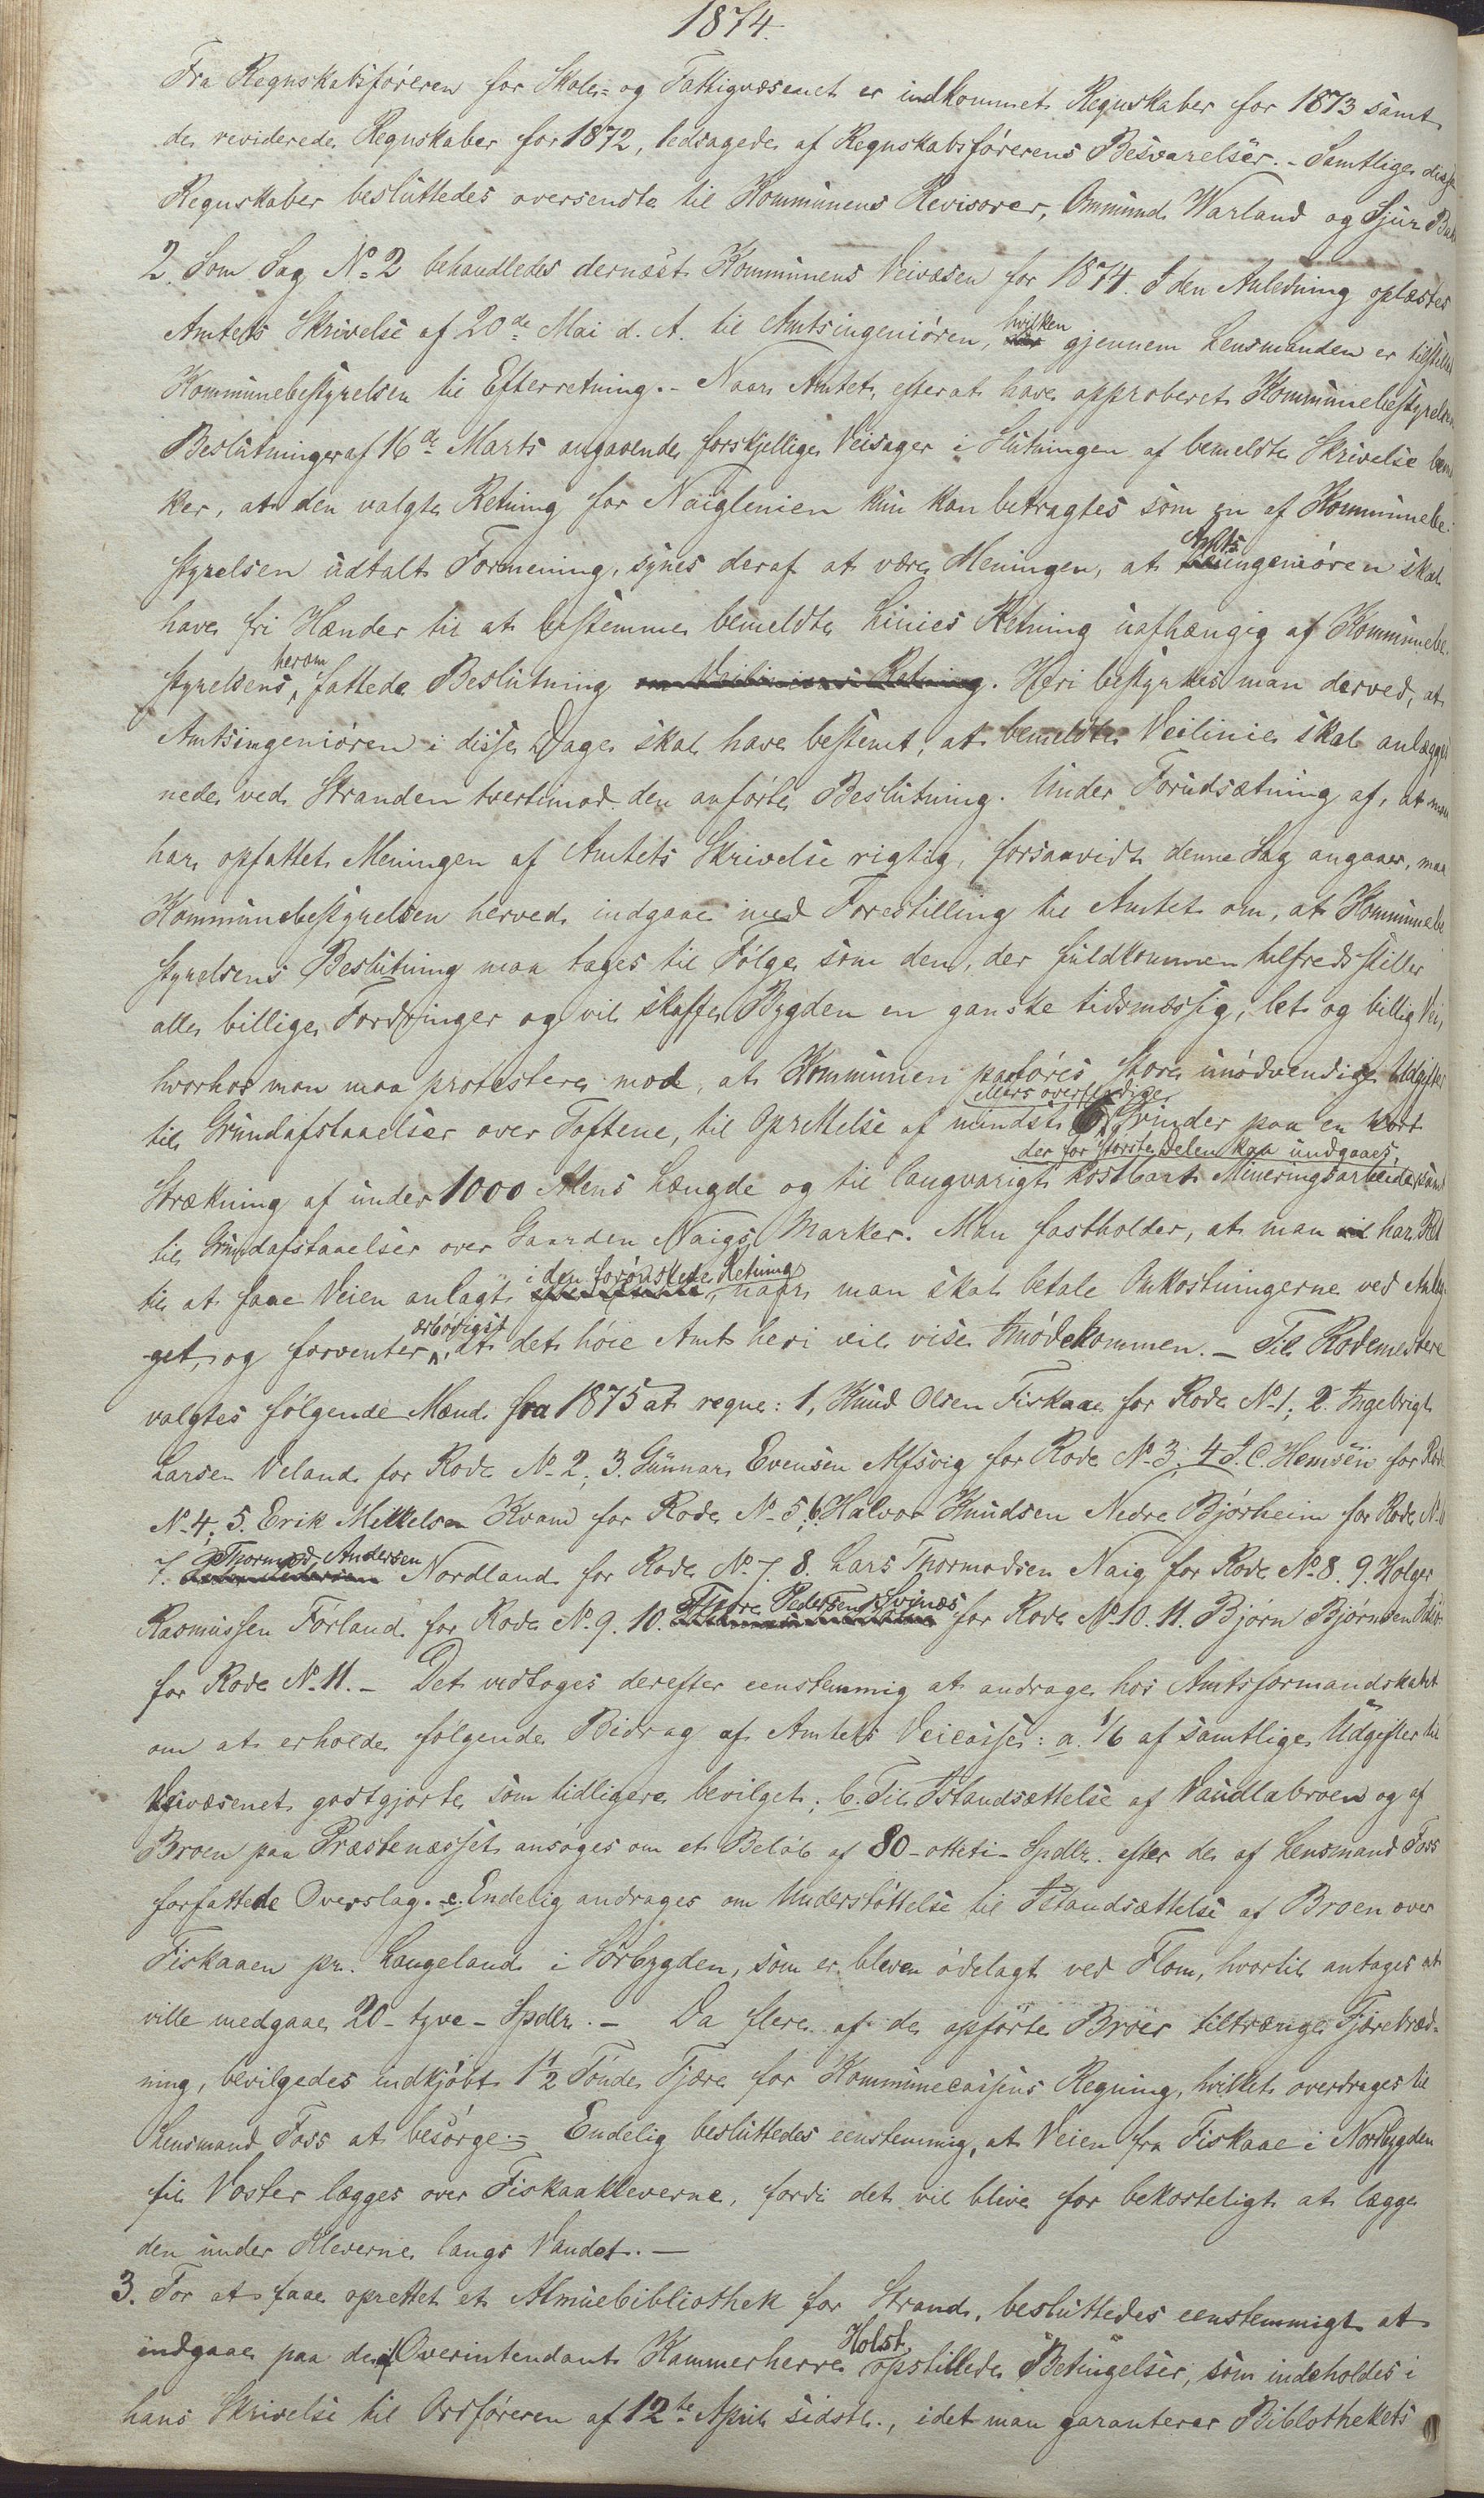 1874.
Fra Regnskabsføreren for Skole- og Fattigvæsenet er indkommet Regnskaber for 1873 samt
de reviderede Regnskaber for 1872, ledsagede af Regnskabsførerens Besvarelser. - Samtlige disse
Regnskaber besluttedes oversendte til Kommunens Revisorer, Ommund Warland og Sjur
2. Som Sag No 2 behandledes dernæst Kommunens Veivæsen for 1874. I den Anledning oplæstes
Amtets Skrivelse af 20de Mai d. A. til Amtsingeniøren, hvilken gjennem Lensmanden er tilstillet
Kommunebestyrelsen til Efterretning. - Naar Amtet, efterat have approberet Kommunebestyrelsens
Beslutninger af 16de Marts angaaende forskjellige Veisager i Slutningen af bemeldte Skrivelse bemær
ker, at den valgte Retning for Naiglinien kun kan betragtes som en af Kommunebe-
styrelsen udtalt Formening, synes deraf at være Meningen, at Amtsingeniøren skal
have fri Hænder til at bestemme bemeldte Linies Retning uafhængig af Kommunebe-
styrelsens herom fattede Beslutning om Veiliniens Retning. Heri bestyrkes man derved, at
Amtsingeniøren i disse Dage skal have bestemt, at bemeldte Veilinie skal anlægges
nede ved Stranden tvertimod den anførte Beslutning. Under Forudsætning af, at man
har opfattet Meningen af Amtets Skrivelse rigtig, forsaavidt denne Sag angaaer, maa
Kommunebestyrelsen herved indgaae med Forestilling til Amtet om, at Kommunebe-
styrelsens Beslutning maa tages til Følge som den, der fuldkommen tilfredsstiller
alle billige Fordringer og vil skaffe Bygden en ganske tidsmæssig, let og billig Vei,
hvorhos man maa protestere mod, at Kommunen paaføres store unødvendige Udgifter
til Grundafstaaelser over Toftene, til Oprettelse af mindst 6 ellers overflødige Grinder paa en kort
Strækning af under 1000 Alens Længde og til langvarigt kostbart Mineringsarbeide, der for største Delen kan undgaaes, samt
til Grundafstaaelser over Gaarden Naigs Marker. Man fastholder, at man har Ret
til at faae Veien anlagt i den forønskede Retning, naar man skal betale Omkostningerne ved Anlæg-
get, og forventer ærbødigst, at det høie Amt heri vil vise Imødekommen. - Til Rodemestere
valgtes følgende Mænd fra 1875 at regne: 1, Knud Olsen Fiskaae for Rode No 1; 2. Ingebrigt
Larsen Veland for Rode No 2; 3. Gunnar Evensen Alfsvig for Rode No 3; 4 J. C. Hemsen for Rode
No 4; 5. Erik Mikkelsen Kvam for Rode No 5; 6. Halvor Knudsen Nedre Bjørheim for Rode No 6
7. Thormod Andersen Nordland for Rode No 7. 8. Lars Thormodsen Naig for Rode No 8. 9. Holger
Rasmussen Førland for Rode No 9. 10. Thore Pedersen Svines for Rode No 10. 11. Bjørn Bjørnsen
for Rode No 11. - Det vedtoges derefter eenstemmig at andrage hos Amtsformandskabet
om at erholde følgende Bidrag af Amtets Veicasse: a. 1/6 af samtlige Udgifter til
Veivæsenet godtgjorte som tidligere bevilget; b. Til Istandsættelse af Vaudlabroen og af
Broen paa Præstenæsset ansøges om et Beløb af 80 - otteti - Spdlr. efter de af Lensmand Foss
forfattede Overslag. c. Endelig andrages om Understøttelse til Istandsættelse af Broen over
Fiskaaen pr. Langeland i Sørbygden, som er bleven ødelagt ved Flom, hvortil antages at
ville medgaae 20 - tyve - Spdlr. - Da flere af de opførte Broer tiltrænge Tjærebræd-
ning, bevilgedes indkjøbt 1 1/2 Tønde Tjære for Kommunecassens Regning, hvilket overdrages til
Lensmand Foss at besørge. - Endelig besluttedes eenstemmig, at Veien fra Fiskaae i Nordbygden
til Voster lægges over Fiskaakleverne, fordi det vil blive for bekosteligt at lægge
den under Kleverne langs Vandet. -
3. For at faae oprettet et Almuebibliothek for Strand, besluttedes eenstemmigt at
indgaae paa de af Overintendant Kammerherre Holst opstillede Betingelser, som indeholdes i
hans Skrivelse til Ordføreren af 12te April sidstl., idet man garanterer Bibliothekets